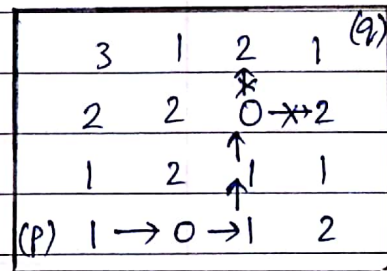 3 1 2 1 (q)
2 2 0 2
1 2 1 1
(p) 1 → 0 → 1 2